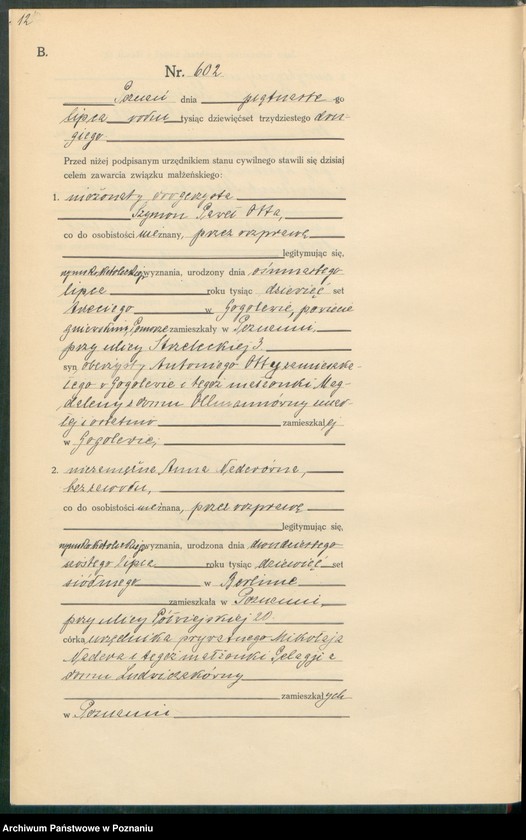 12
B.
Nr. 602
Poznań dnia piętnasto go
lipca roku tysiąc dziewięćset trzydziestego dru-
giego
Przed niżej podpisanym urzędnikiem stanu cywilnego stawili się dzisiaj
celem zawarcia związku małżeńskiego:
1. nieżonaty drogerzysta
Szymon Paweł Otta,
co do osobistości uznany, przez rozprawę
legitymując się,
rzymsko katolickiego wyznania, urodzony dnia ósmnastego
lipca roku tysiąc dziewięć set
trzeciego w Gogolewie, powiecie
gniewskim, Pomorze zamieszkały w Poznaniu
przy ulicy Strzeleckiej 3.
syn oberżysty Antoniego Otty zamieszka-
łego w Gogolewie i tegoż małżonki Mag-
daleny z domu
zamieszkałej
w Gogolewie,
2. niezamężna Anna Nederówna,
bez zawodu,
co do osobistości uznana, przez rozprawę
legitymując się,
rzymsko katolickiego wyznania, urodzona dnia dwudziestego
szóstego lipca roku tysiąc dziewięć set
siódmego w Berlinie
zamieszkała w Poznaniu,
przy ulicy Półwiejskiej 20.
córka urzędnika prywatnego Mikołaja
Nedera i tegoż małżonki Pelagji z
domu
zamieszkałych
w Poznaniu
Archiwum Państwowe w Poznaniu